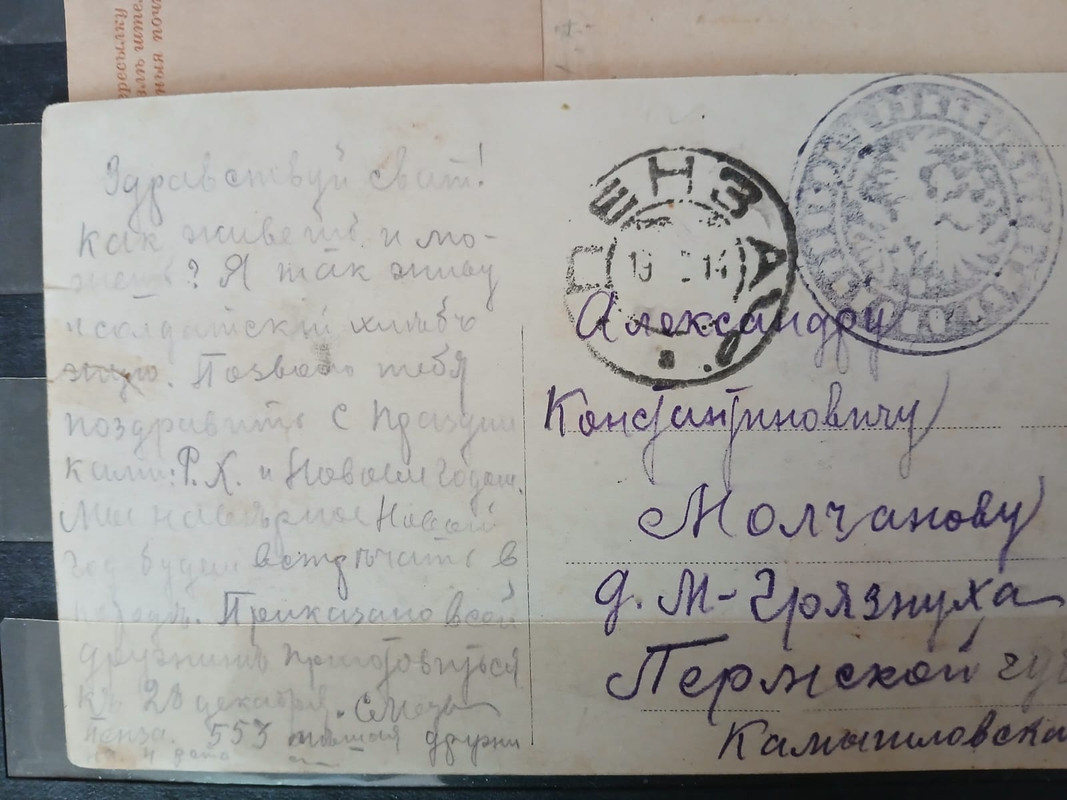 ересылку
ныя поч
Здравствуй Сват!
Как живешь и мо-
жешь? Я так живу
и солдатский хлѣбъ
жую. Позволь тебя
поздравить с праздни
ками: Р. Х. и Новым годом.
Мы наверное Новый
год будем встречать в
Приказано всей
дружинѣ приготовиться
къ 28 декабря.
Пенза. 553 пешая дружи
ПЕНЗА
19 14
Александру
Константиновичу
Молчанову
д. М-Грязнуха
Пермской гу
Камышловска